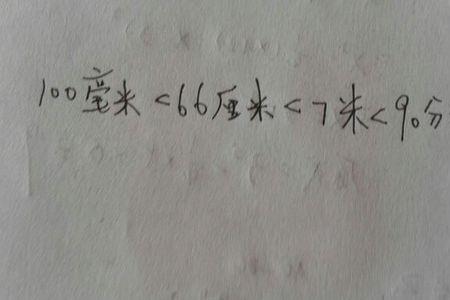 100毫米<66厘米<7米<90分